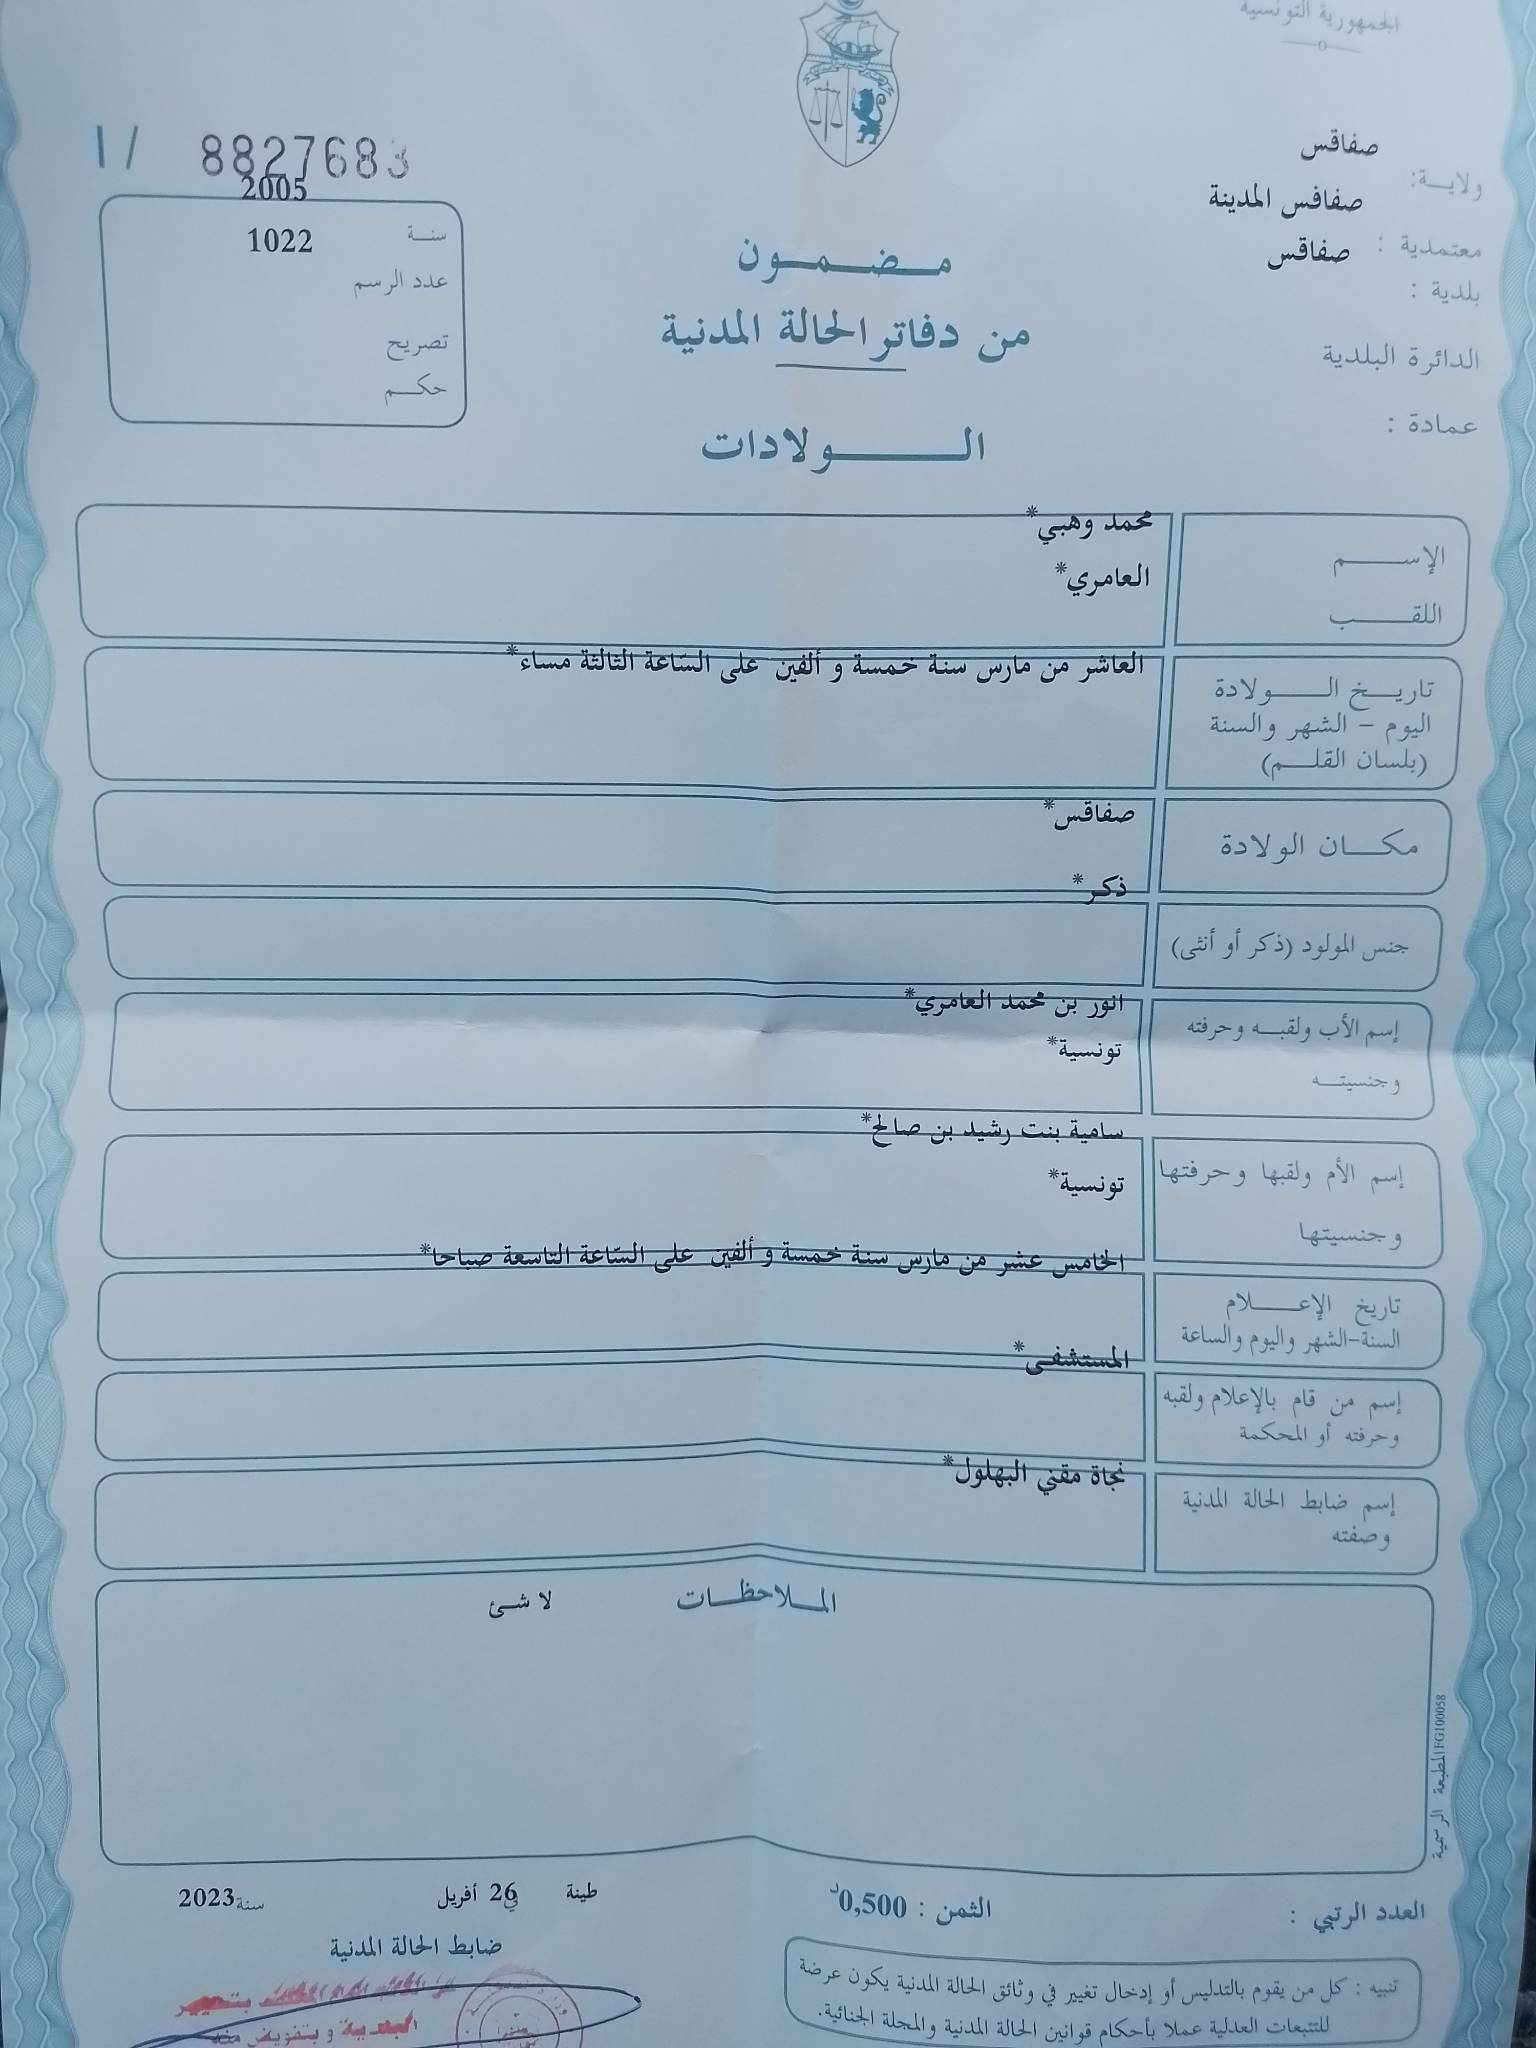 الجمهورية التونسية
صفاقس
ولاية:
صفاقس المدينة
معتمدية :
صفاقس
بلدية :
الدائرة البلدية
عمادة :
مضمون
من دفاتر الحالة المدنية
الولادات
1/ 8827683
2005
سنة
1022
عدد الرسم
تصريح
حكم
محمد وهبي*
الإسم
العامري*
اللقب
العاشر من مارس سنة خمسة و ألفين على السّاعة الثالثة مساء*
تاريخ الولادة
اليوم – الشهر والسنة
(بلسان القلم)
صفاقس*
مكان الولادة
ذكر*
جنس المولود (ذكر أو أنثى)
انور بن محمد العامري*
إسم الأب ولقبه وحرفته
تونسية*
وجنسيته
سامية بنت رشيد بن صالح*
إسم الأم ولقبها وحرفتها
تونسية*
وجنسيتها
الخامس عشر من مارس سنة خمسة و ألفين على السّاعة التاسعة صباحا*
تاريخ الإعلام
السنة-الشهر واليوم والساعة
المستشفى*
إسم من قام بالإعلام ولقبه
وحرفته أو المحكمة
نجاة مقني البهلول*
إسم ضابط الحالة المدنية
وصفته
الملاحظات
لا شئ
المطبعة الرسمية FG100058
العدد الرتبي :
الثمن : 0,500د
طينة في 26 أفريل سنة 2023
ضابط الحالة المدنية
تنبيه : كل من يقوم بالتدليس أو إدخال تغيير في وثائق الحالة المدنية يكون عرضة
للتتبعات العدلية عملا بأحكام قوانين الحالة المدنية والمجلة الجنائية.
البلدية وبتفويض منه